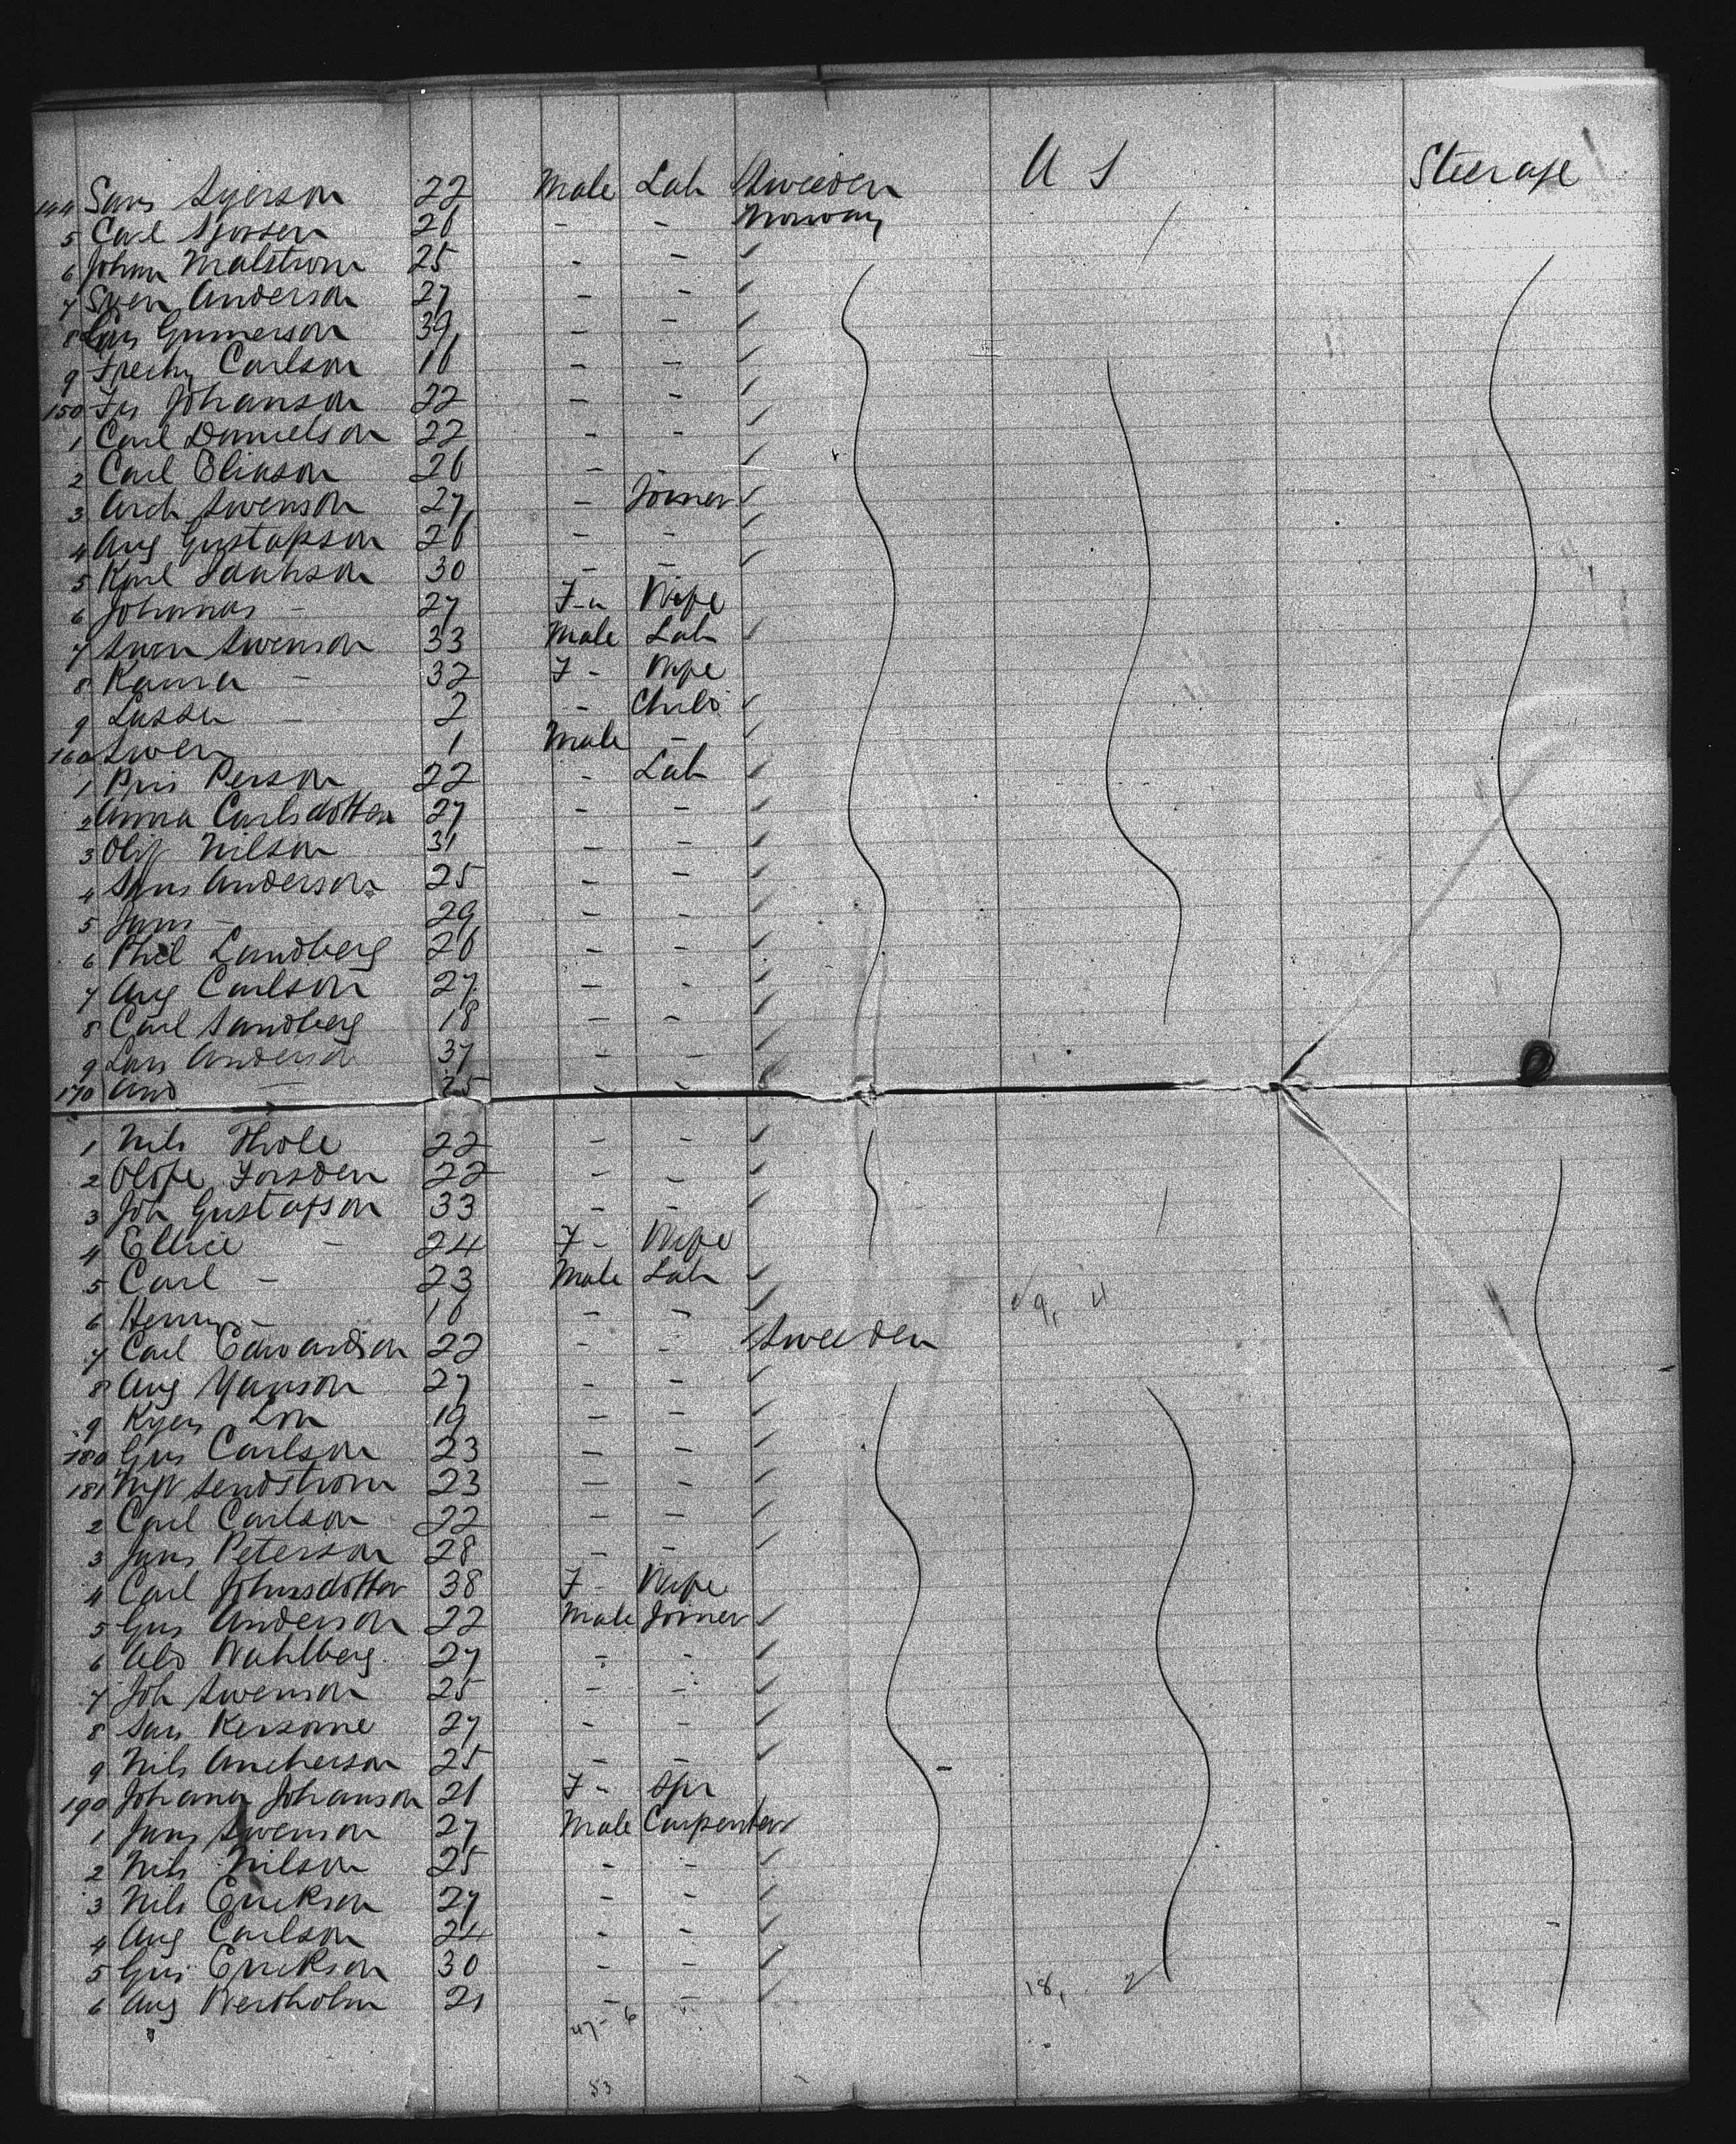 144 Sans Syerson 22 Male Lab Sweeden U S Steerage
5 Carl 26 - - Norway
6 Johan Malstrom 25 - -
7 Sven Anderson 27 - -
8 Lars Gunnerson 39 - -
9 Carlson 16 - -
150 Johanson 22 - -
1 Carl Danielson 22 - -
2 Carl Eliason 26 - -
3 Arch Swenson 27 - Joiner
4 Aug Gustafson 26 - -
5 Karl 30 - -
6 Johannas - 27 F- Wife
7 Swen Swenson 33 Male Lab
8 Kaura - 32 F - Wife
9 Lassen - 2 - Child
160 Swen 1 Male -
1 Person 22 - Lab
2 Anna Carlsdotter 27 - -
3 Olof Nilson 31 - -
4 Anderson 25 - -
5 Jans - 29 - -
6 Phil Lundberg 26 - -
7 Aug Carlson 27 - -
8 Carl Sandberg 18 - -
9 Lars Anderson 37 - -
170 And - 25 - -
1 Nils Thole 22 - -
2 Olofe Forsden 22 - -
3 Joh Gustafson 33 - -
4 Ellice - 24 F - Wife
5 Carl - 23 Male Lab
6 Henry - 18 - -
7 Carl Edwardson 22 - - Sweeden
8 Aug Yanson 27 - -
9 19 - -
180 Gus Carlson 23 - -
181 Lendstrom 23 - -
2 Carl Carlson 22 - -
3 Jans Peterson 28 - -
4 Carl Johnsdotter 38 F - Wife
5 Gus Anderson 22 Male Joiner
6 Wahlberg 27 - -
7 Joh Swenson 25 - -
8 27 - -
9 Nils Ancherson 25 - -
190 Johana Johanson 21 F - Spr
1 Jans Swenson 27 Male Carpenter
2 Nils Nilson 25 - -
3 Nils Erickson 27 - -
4 Aug Carlson 24 - -
5 Gus Erickson 30 - - 18, 2
6 Aug Westholm 21 - -
47 - 6
53